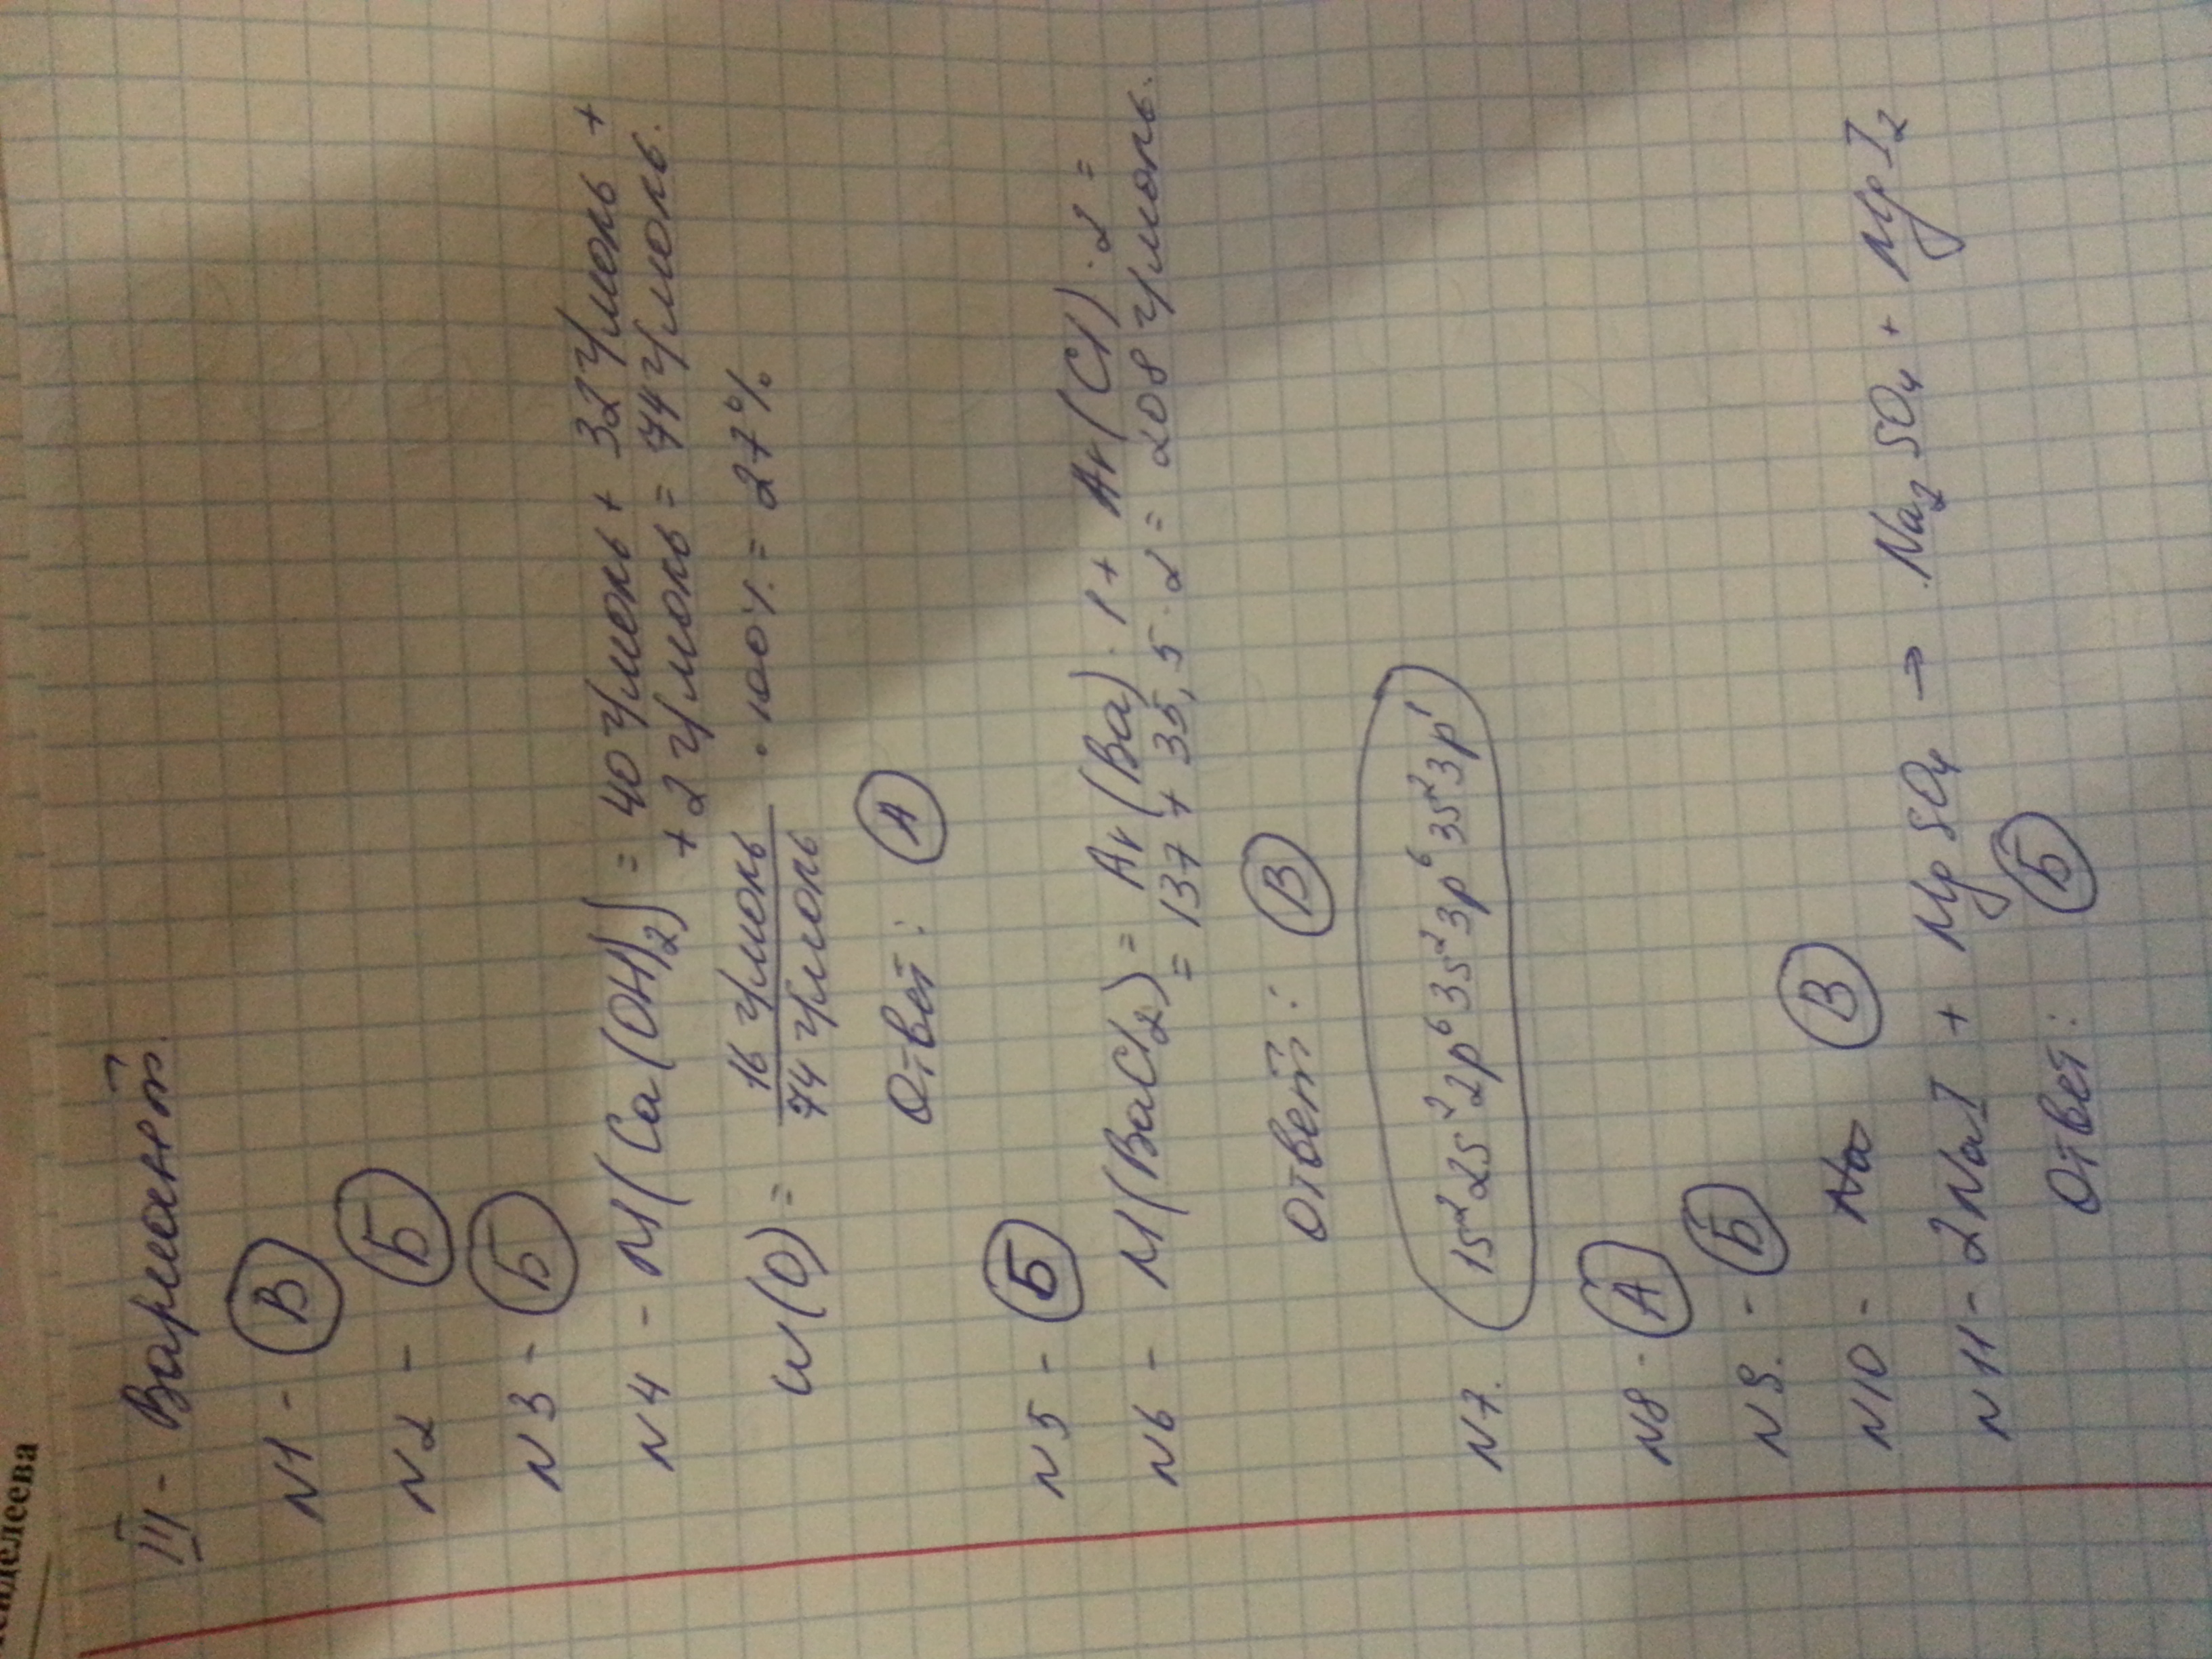 нделеева
III - Вариант.
N1 - В
N2 - Б
N3 - Б
N4 - M(Ca(OH)2) = 40 г/моль + 32 г/моль +
+ 2 г/моль = 74 г/моль.
W(O) = 16 г/моль / 74 г/моль · 100% = 27%
Ответ: А
N5 - Б
N6 - M(BaCl2) = Ar(Ba) · 1 + Ar(Cl) · 2 =
= 137 + 35,5 · 2 = 208 г/моль.
Ответ: В
N7. 1s² 2s² 2p⁶ 3s² 3p⁶ 3s² 3p¹
N8 - А
N9. - Б
N10 - В
N11 - 2NaI + MgSO4 → Na2SO4 + MgI2
Ответ: Б